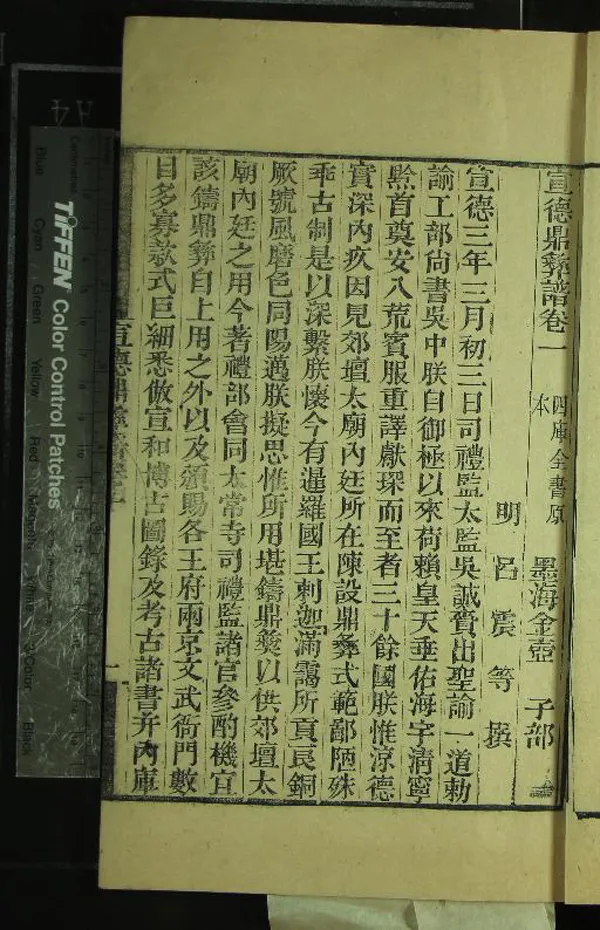 宣德鼎彝譜卷一 四庫全書原本 墨海金壺 子部
明 呂震等 撰
宣德三年三月初三日司禮監太監吳誠賫出聖諭一道勅
諭工部尙書吳中朕自御極以來荷賴皇天垂佑海宇淸寧
黔首奠安八荒賓服重譯獻琛而至者三十餘國朕惟涼德
實深內疚因見郊壇太廟內廷所在陳設鼎彝式範鄙陋殊
乖古制是以深繫朕懷今有暹羅國王剌迦滿靄所貢良銅
厥號風磨色同陽邁朕擬思惟所用堪鑄鼎彝以供郊壇太
廟內廷之用今著禮部會同太常寺司禮監諸官參酌機宜
該鑄鼎彝自上用之外以及頒賜各王府兩京文武衙門數
目多寡款式巨細悉倣宣和博古圖錄及考古諸書并內庫
宣德鼎彝譜卷一
一
TIFFEN Color Control Patches
Blue
Cyan
Green
Yellow
Red
Magenta
White
3/Color
Black
A4